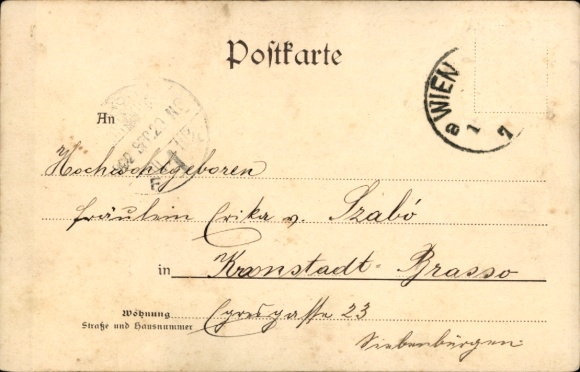 Postkarte
WIEN
1
An
Hochwohlgeboren
Fräulein Erika v. Szabó
in Kronstadt-Brasso
Wohnung
Straße und Hausnummer
23
Siebenbürgen